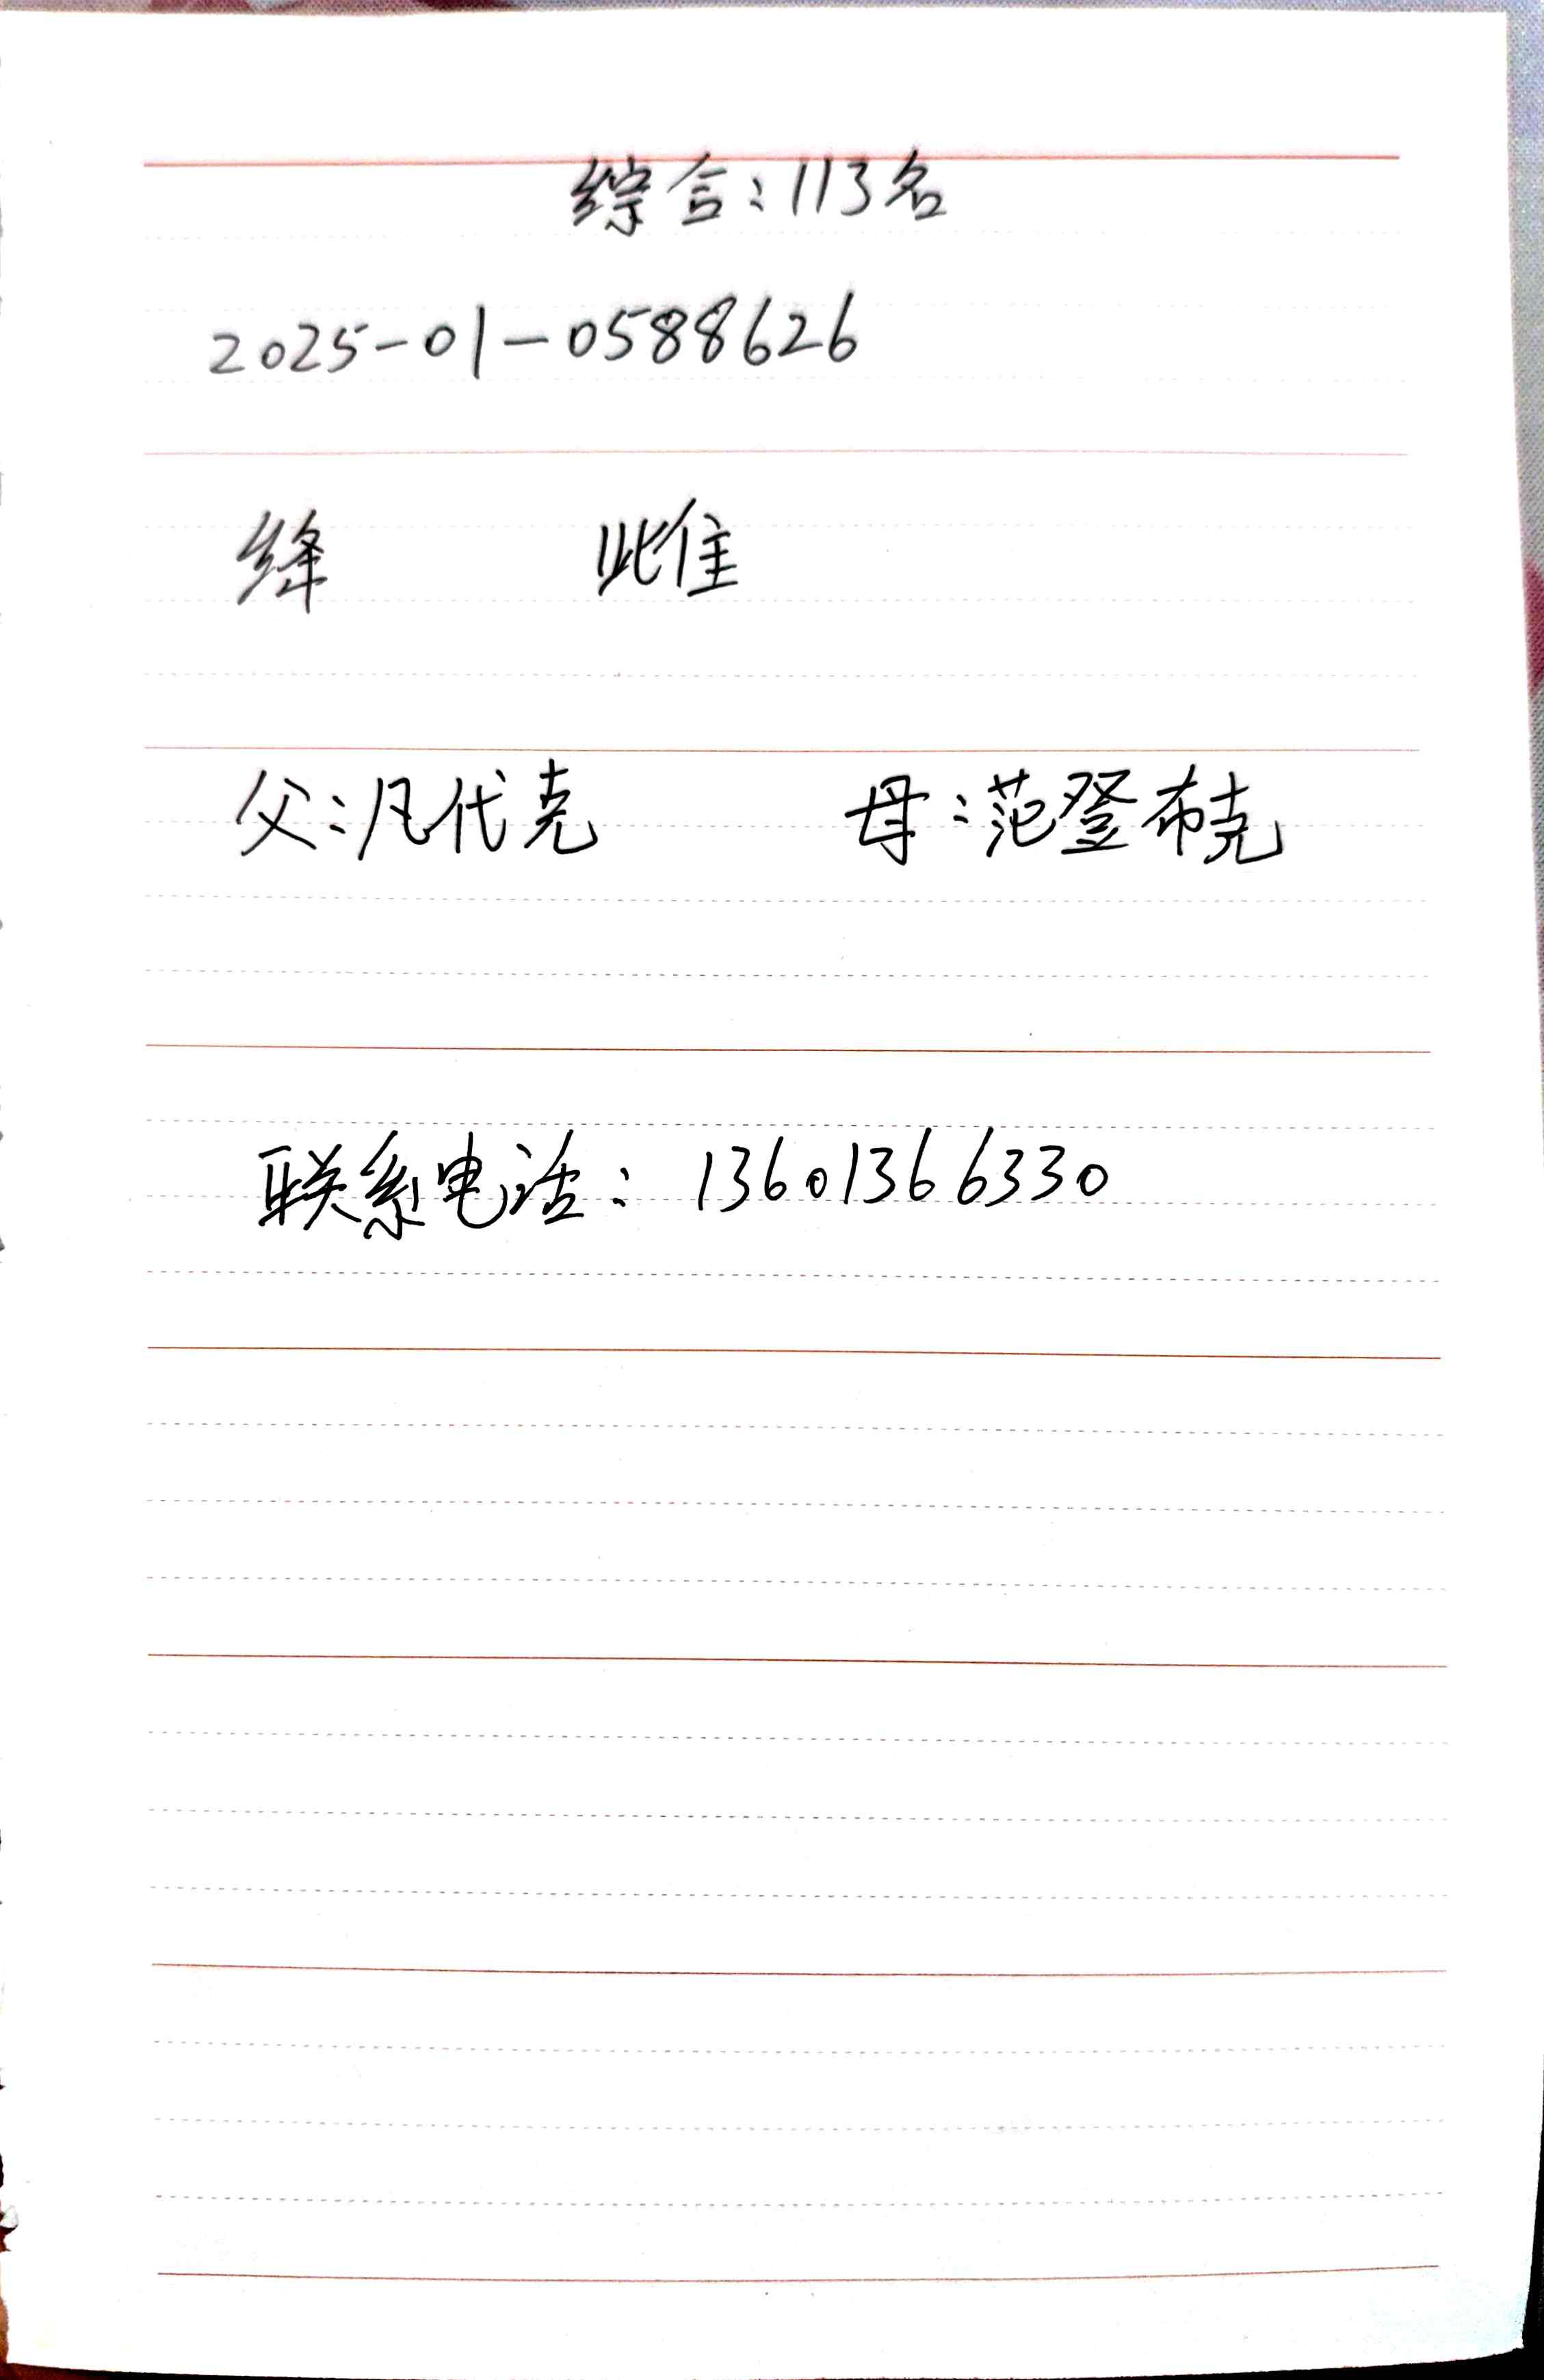 综合:113名
2025-01-0588626
绛 雌
父:凡代克 母:范登布克
联系电话:13601366330